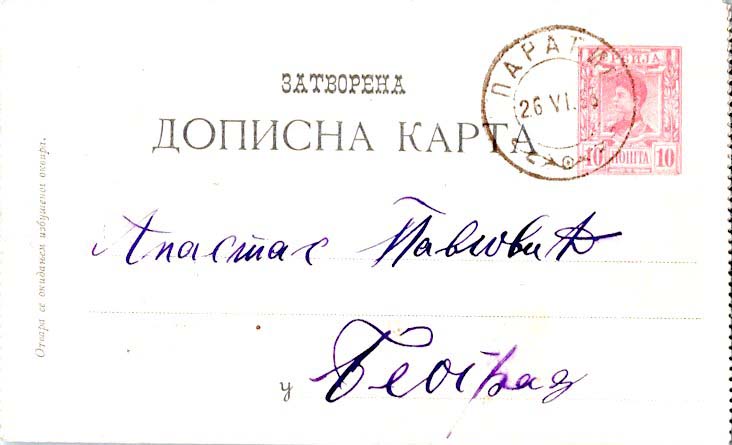 СРБИЈА
ПАРАЋИН
26 VI.
ЗАТВОРЕНА
ДОПИСНА КАРТА
10 ПОШТА 10
Апостас Павловић
у Београд
Отвара се окидањем избушеног оквира.